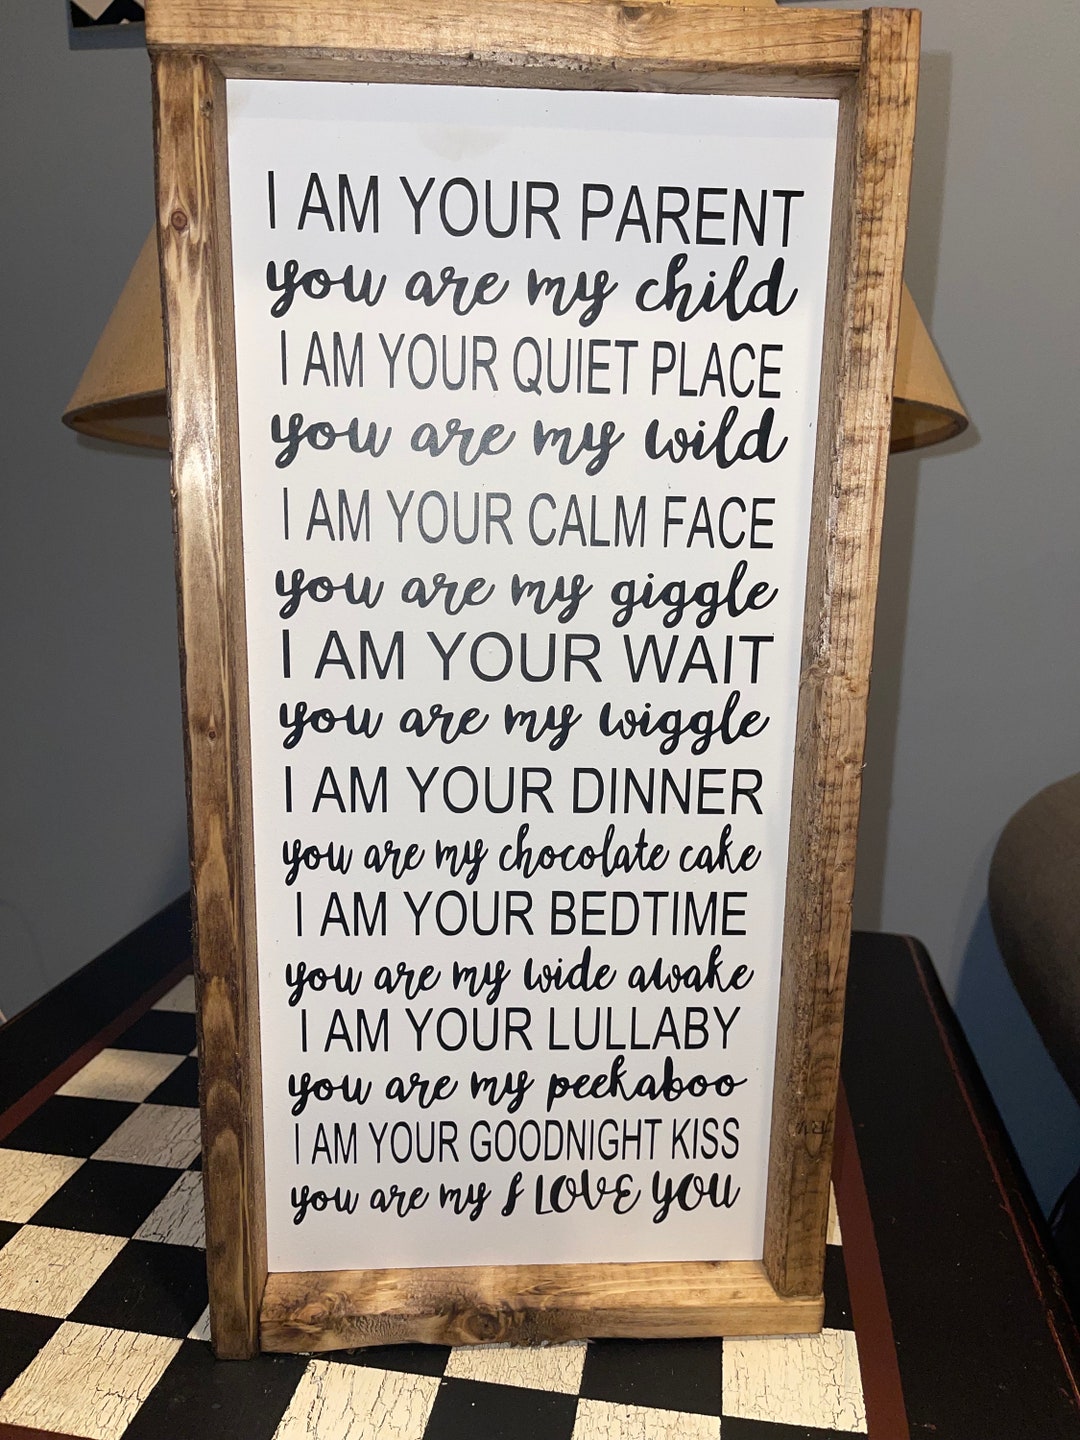 I AM YOUR PARENT
you are my child
I AM YOUR QUIET PLACE
you are my wild
I AM YOUR CALM FACE
you are my giggle
I AM YOUR WAIT
you are my wiggle
I AM YOUR DINNER
you are my chocolate cake
I AM YOUR BEDTIME
you are my wide awake
I AM YOUR LULLABY
you are my peekaboo
I AM YOUR GOODNIGHT KISS
you are my I LOVE YOU